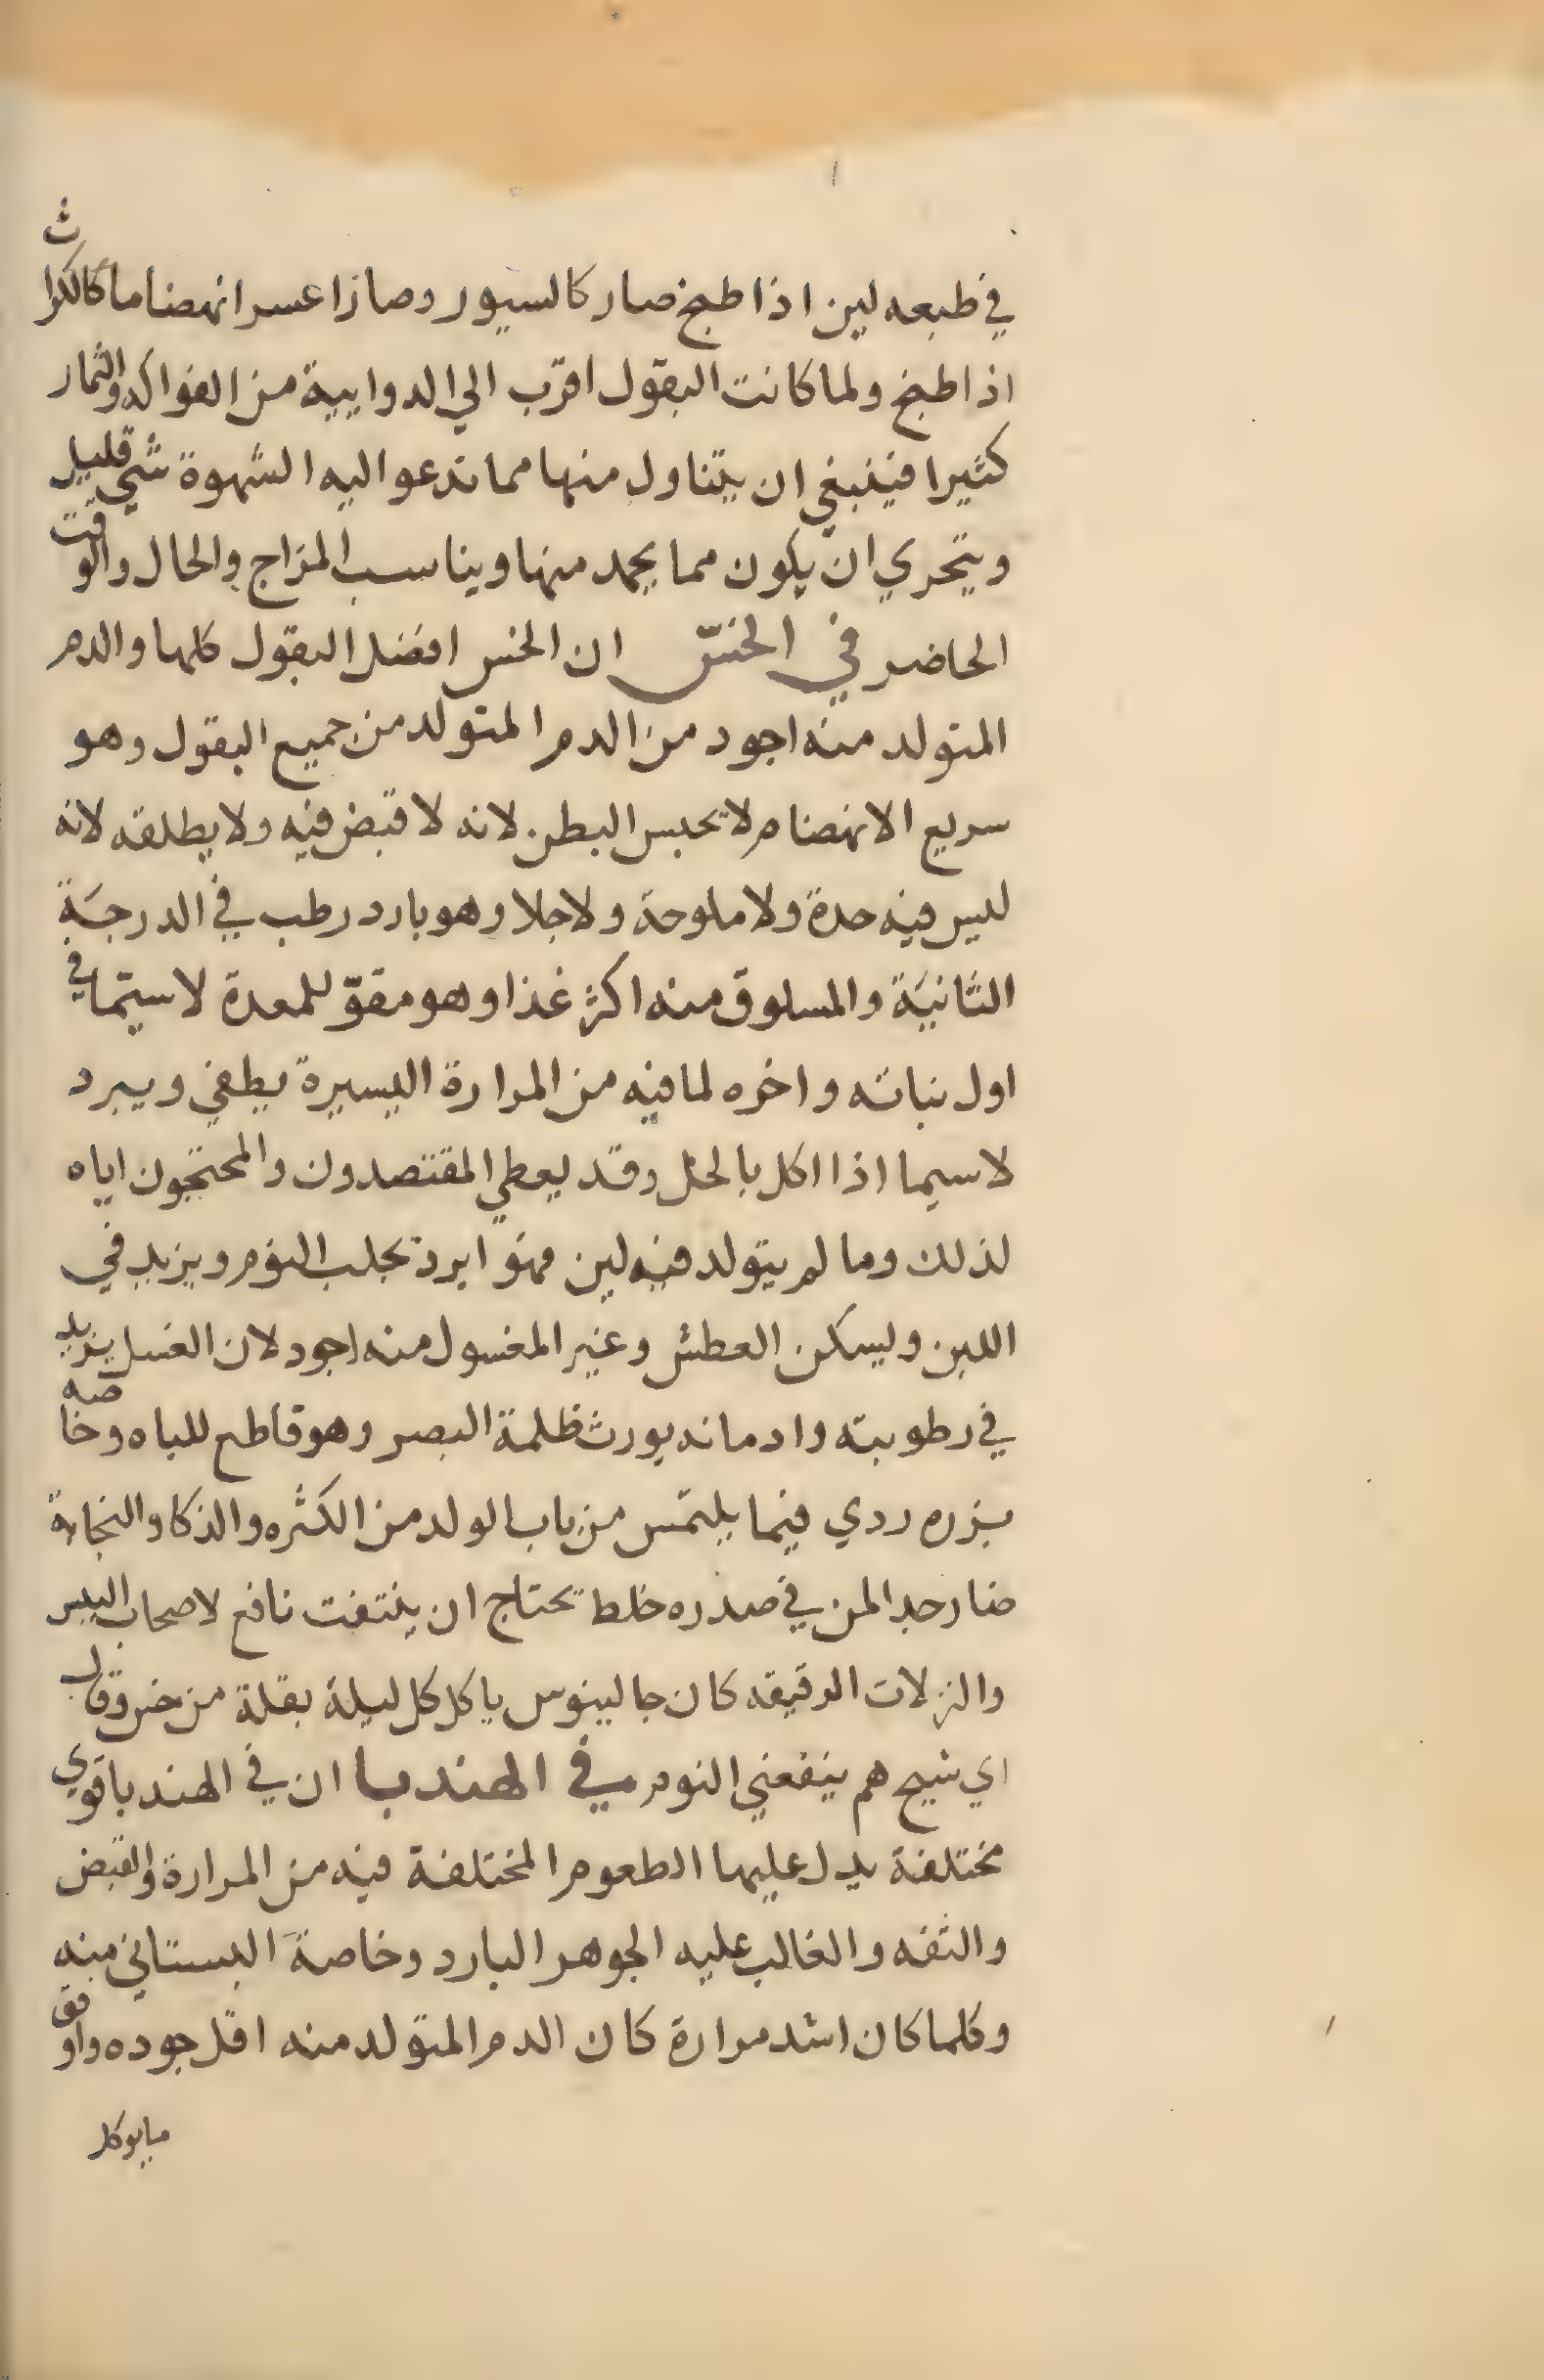 في طبعه لين اذا طبخ صار كالسيور وصار اعسر انهضاما كالكراث
اذا طبخ ولما كانت البقول اقرب الي الدوايية من الفواكه والثمار
كثيرا فينبغي ان يتناول منها مما تدعو اليه الشهوة شي قليل
ويتحري ان يكون مما يحمد منها ويناسب المزاج والحال والوقت
الحاضر في الخسّ ان الخس افضل البقول كلها والدم
المتولد منه اجود من الدم المتولد من جميع البقول وهو
سريع الانهضام لا يحبس البطن لانه لا قبض فيه ولا يطلقه لانه
ليس فيه حدة ولا ملوحة ولا جلا وهو بارد رطب في الدرجَة
الثانيَة والمسلوق منه اكثر غذا وهو مقوّ للمعدة لا سيّما في
اول نباته واخره لما فيه من المرارة اليسيرة يطفي ويبرد
لا سيما اذا اكل بالخل وقد يعطي المقتصدون والمحتجمون اياه
لذلك وما لم يتولد فيه لين فهو ابرد يجلب النوم ويزيد في
اللبن ويسكن العطش وغير المغسول منه اجود لان الغسل يزيد
في رطوبته وادمانه يورث ظلمة البصر وهو قاطع للباه وخاصه
بزره ردي فيما يلتمس من باب الولد من الكثره والذكا والنجابة
ضار جدا لمن في صدره خلط تحتاج ان ينتفث نافع لاصحاب اليبس
والنزلات الدقيقه كان جالينوس ياكل كل ليلة بقلة من خس وقال
اي شيح هم ينفعني النوم في الهندبا ان في الهندبا قوي
مختلفة يدل عليها الطعوم المختلفة فيه من المرارة والقبض
والتفه والغالب عليه الجوهر البارد وخاصةَ البستاني منه
وكلما كان اشد مرارة كان الدم المتولد منه اقل جوده واوفق
مايوكل